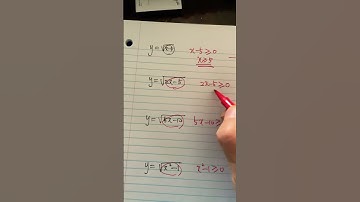 y=√x-5 x-5≥0
x≥5
y=√2x-5 2x-5≥0
y=√5x-10 5x-10≥
y=√x²-1 x²-1≥0